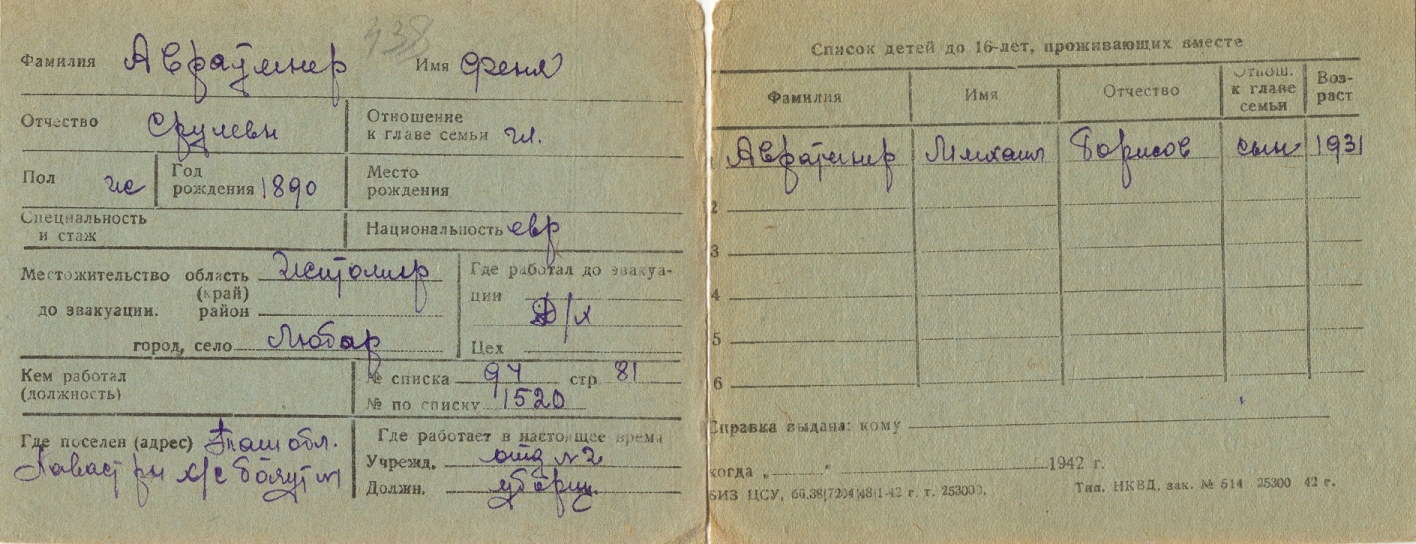 438
Фамилия Авратинер Имя Феня
Отчество Срулевн Отношение к главе семьи гл.
Пол ж Год рождения 1890 Место рождения
Специальность и стаж Национальность евр
Местожительство до эвакуации. область (край) Житомир
район
город, село Любар
Где работал до эвакуации Д/х
Цех
Кем работал (должность)
№ списка 97 стр 81
№ по списку 1520
Где поселен (адрес) Таш обл.
Хаваст рн х/с Бояут №1
Где работает в настоящее время
Учрежд. отд №2
Должн. уборщ.
Список детей до 16-лет, проживающих вместе
Фамилия Имя Отчество Отнош. к главе семьи Возраст
1 Авратинер Михаил Борисов сын 1931
2
3
4
5
6
Справка выдана: кому
когда „ “ 1942 г.
БИЗ ЦСУ, 66.38|7204|48|1-42 г. т. 253000. Тип. НКВД, зак. № 614 25300 42 г.